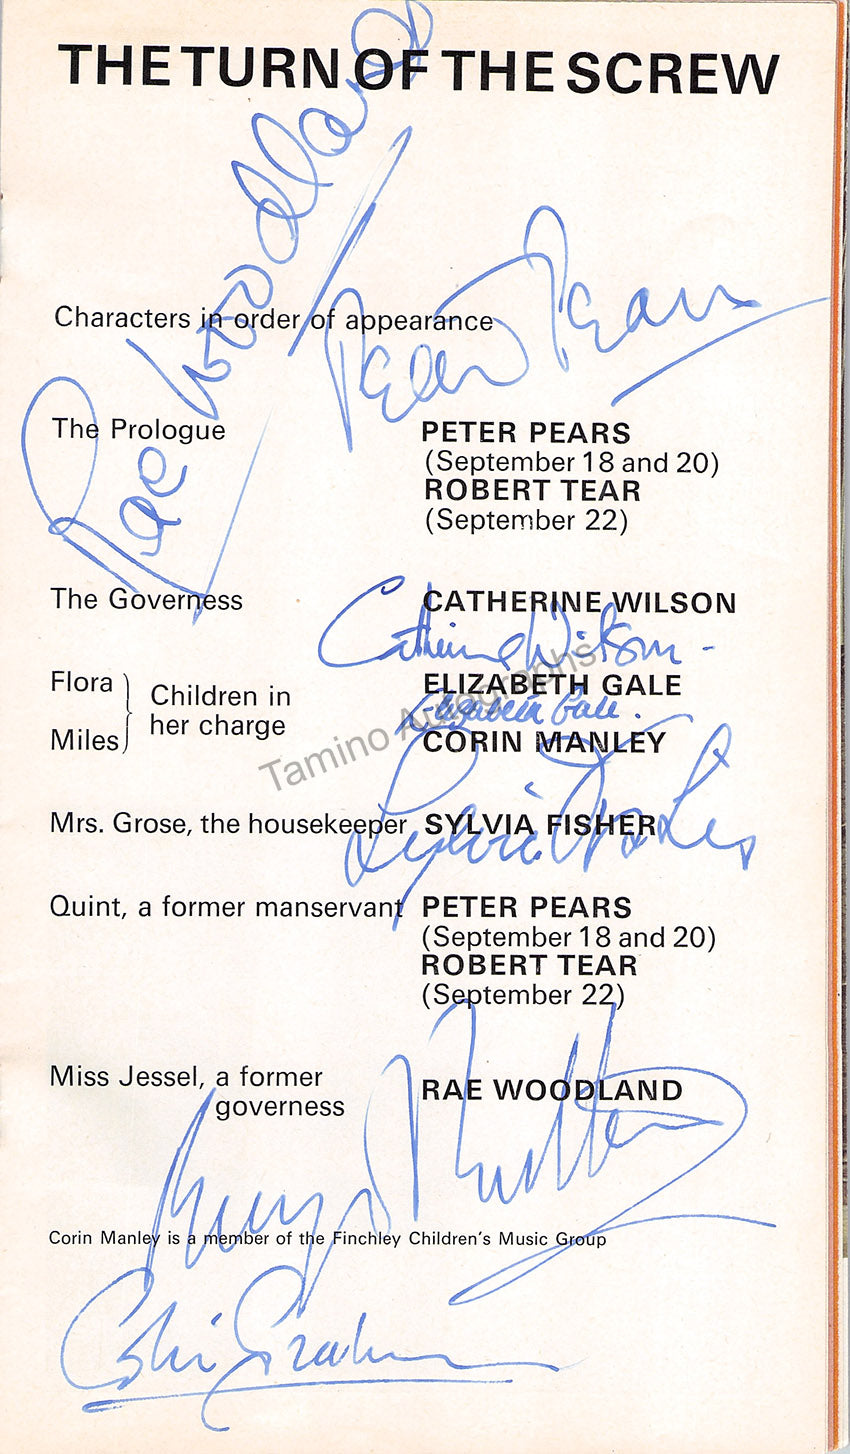 THE TURN OF THE SCREW
Rae Woodland
Peter Pears
Characters in order of appearance
The Prologue PETER PEARS
(September 18 and 20)
ROBERT TEAR
(September 22)
The Governess CATHERINE WILSON
Catherine Wilson
Flora ELIZABETH GALE
Children in
her charge
Elizabeth Gale.
Miles CORIN MANLEY
Tamino Autographs
Mrs. Grose, the housekeeper SYLVIA FISHER
Sylvia Fisher
Quint, a former manservant PETER PEARS
(September 18 and 20)
ROBERT TEAR
(September 22)
Miss Jessel, a former
governess RAE WOODLAND
Corin Manley is a member of the Finchley Children's Music Group
Colin Graham